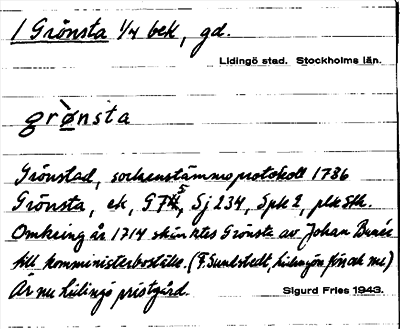 1 Grönsta 1/4 bek, gd.
Lidingö stad. Stockholms län.
grø̀nsta
Grönstad, sockenstämmoprotokoll 1736
Grönsta, ek, G 75, Sj 234, Spk 2, plk Sth.
Omkring år 1714 skänktes Grönsta av Johan Bunér
till komministerboställe. (F. Sundstedt, Lidingön förr och nu)
Är nu Lidingö prästgård.
Sigurd Fries 1943.